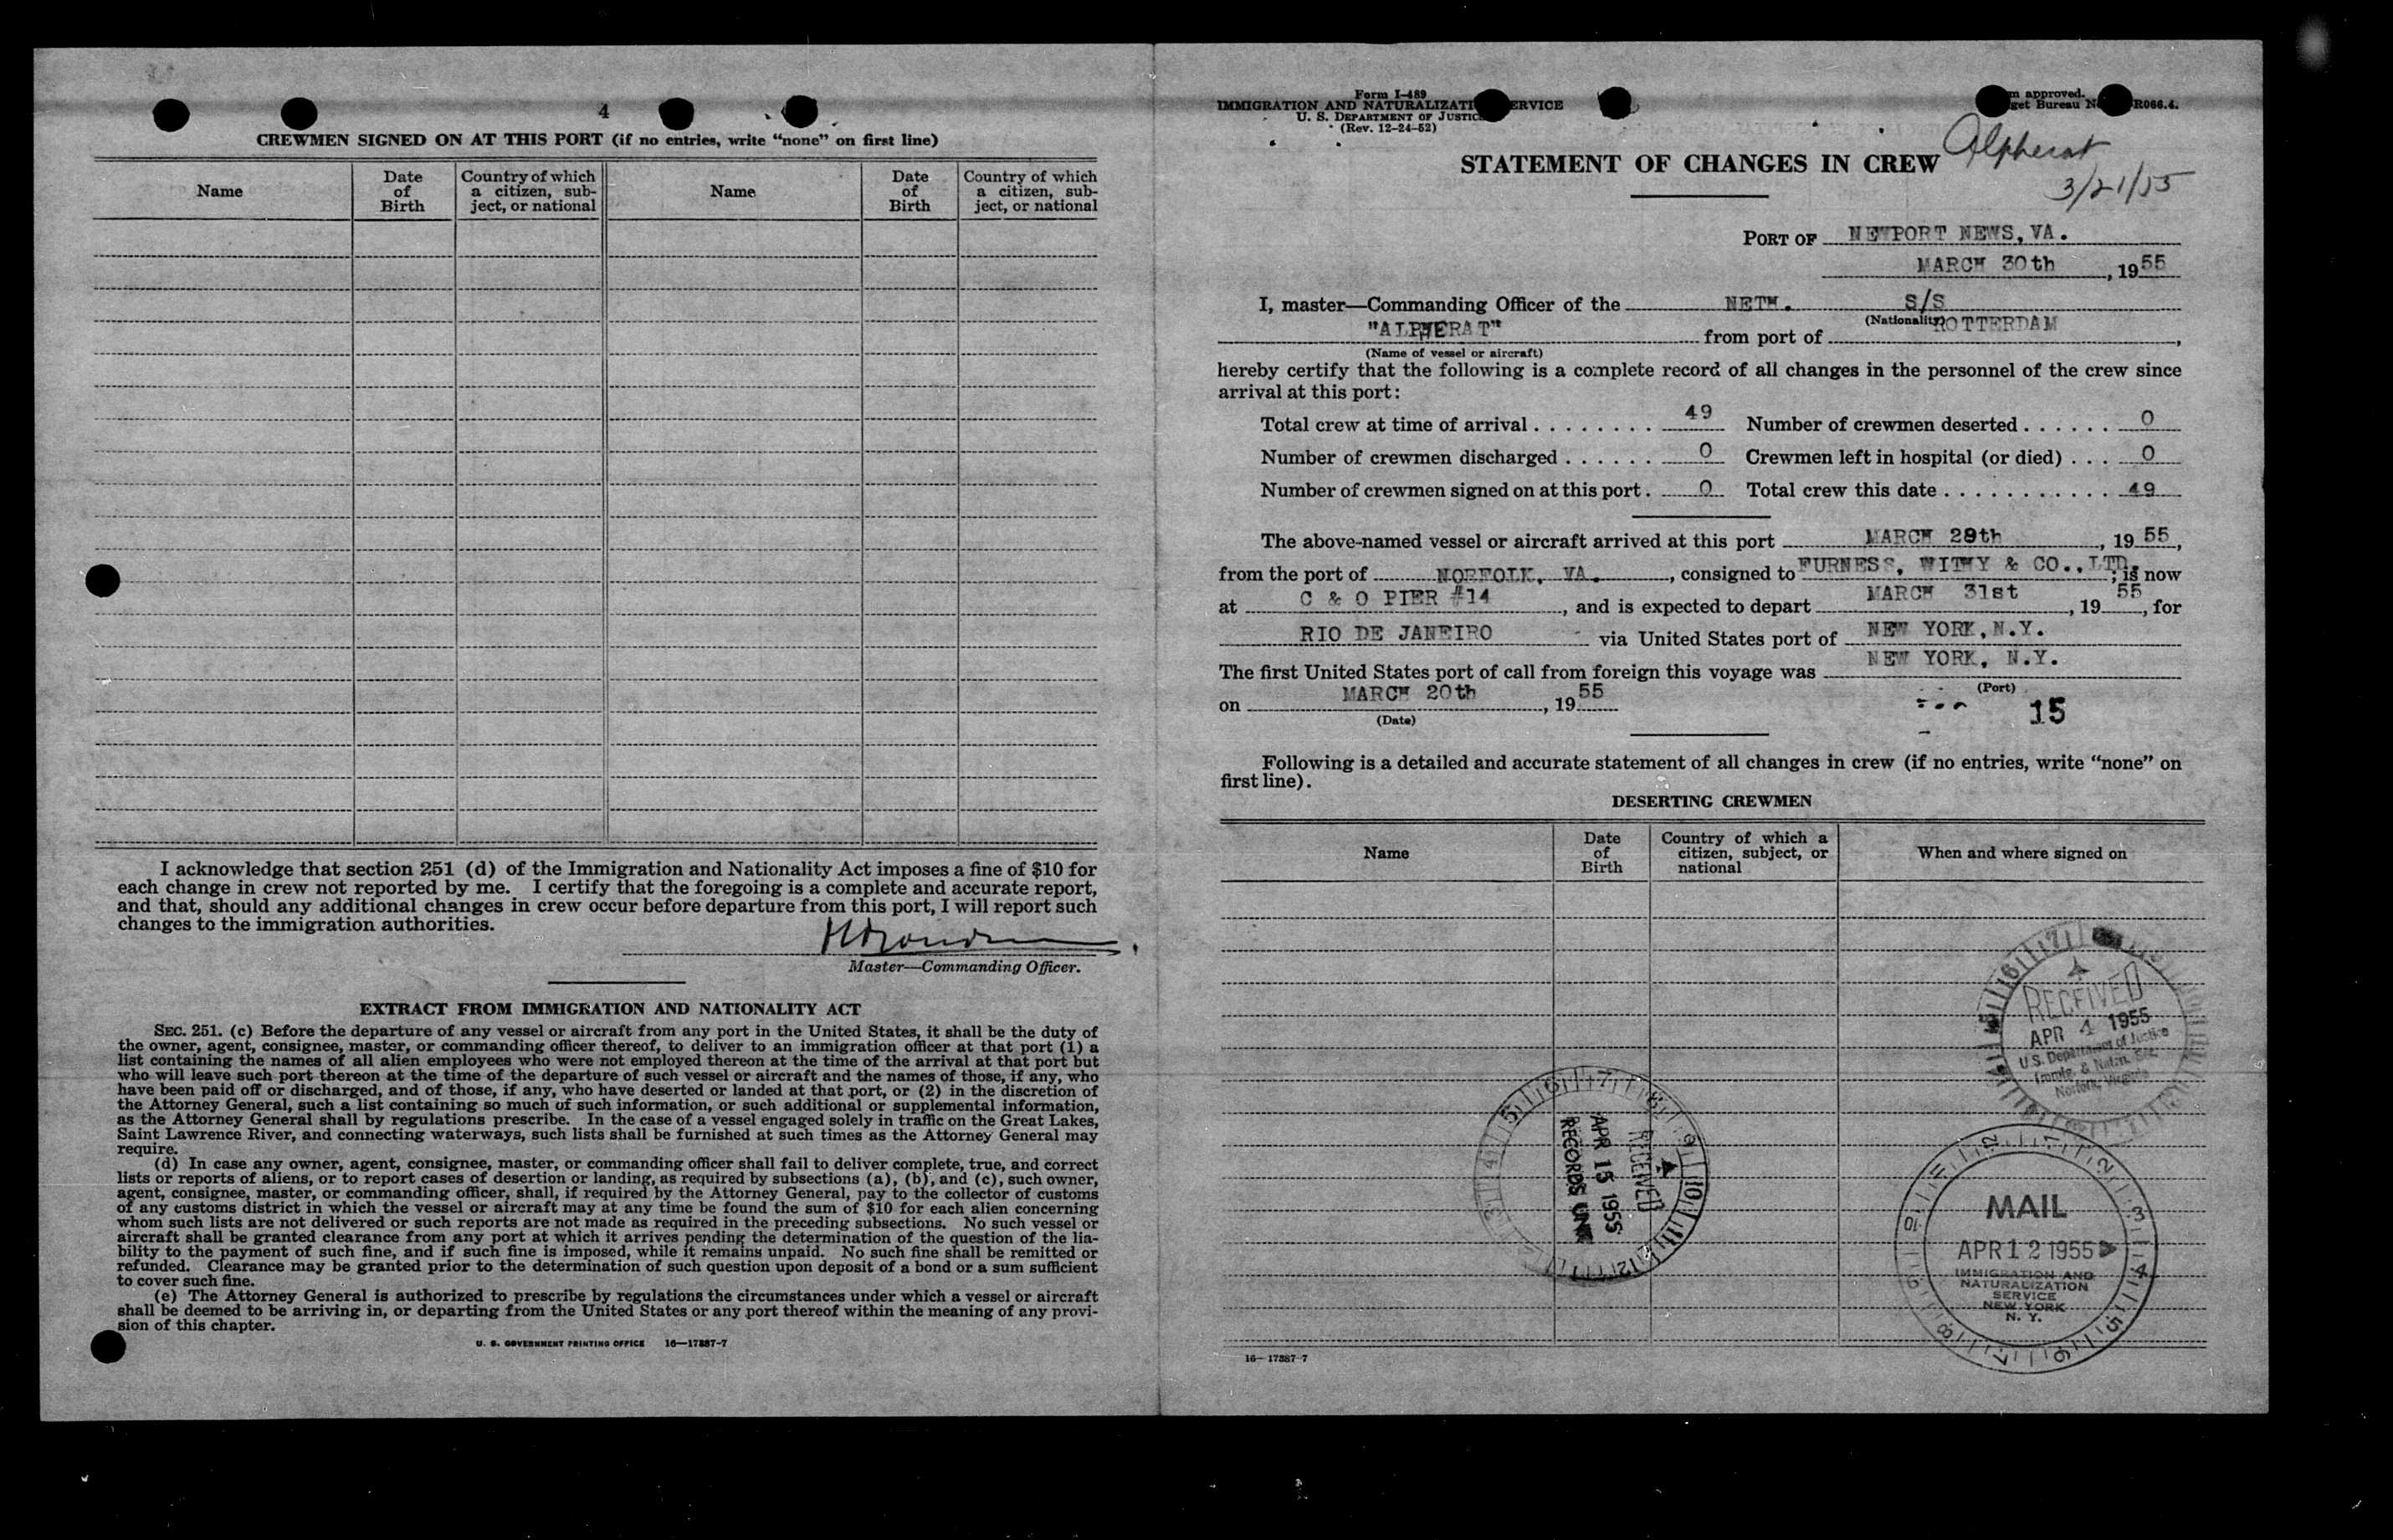 4
CREWMEN SIGNED ON AT THIS PORT (if no entries, write "none" on first line)
Name
Date of Birth
Country of which a citizen, sub-ject, or national
Name
Date of Birth
Country of which a citizen, sub-ject, or national
I acknowledge that section 251 (d) of the Immigration and Nationality Act imposes a fine of $10 for
each change in crew not reported by me. I certify that the foregoing is a complete and accurate report,
and that, should any additional changes in crew occur before departure from this port, I will report such
changes to the immigration authorities.
Master—Commanding Officer.
EXTRACT FROM IMMIGRATION AND NATIONALITY ACT
SEC. 251. (c) Before the departure of any vessel or aircraft from any port in the United States, it shall be the duty of
the owner, agent, consignee, master, or commanding officer thereof, to deliver to an immigration officer at that port (1) a
list containing the names of all alien employees who were not employed thereon at the time of the arrival at that port but
who will leave such port thereon at the time of the departure of such vessel or aircraft and the names of those, if any, who
have been paid off or discharged, and of those, if any, who have deserted or landed at that port, or (2) in the discretion of
the Attorney General, such a list containing so much of such information, or such additional or supplemental information,
as the Attorney General shall by regulations prescribe. In the case of a vessel engaged solely in traffic on the Great Lakes,
Saint Lawrence River, and connecting waterways, such lists shall be furnished at such times as the Attorney General may
require.
(d) In case any owner, agent, consignee, master, or commanding officer shall fail to deliver complete, true, and correct
lists or reports of aliens, or to report cases of desertion or landing, as required by subsections (a), (b), and (c), such owner,
agent, consignee, master, or commanding officer, shall, if required by the Attorney General, pay to the collector of customs
of any customs district in which the vessel or aircraft may at any time be found the sum of $10 for each alien concerning
whom such lists are not delivered or such reports are not made as required in the preceding subsections. No such vessel or
aircraft shall be granted clearance from any port at which it arrives pending the determination of the question of the lia-
bility to the payment of such fine, and if such fine is imposed, while it remains unpaid. No such fine shall be remitted or
refunded. Clearance may be granted prior to the determination of such question upon deposit of a bond or a sum sufficient
to cover such fine.
(e) The Attorney General is authorized to prescribe by regulations the circumstances under which a vessel or aircraft
shall be deemed to be arriving in, or departing from the United States or any port thereof within the meaning of any provi-
sion of this chapter.
U. S. GOVERNMENT PRINTING OFFICE 16—17887-7
Form I-489
IMMIGRATION AND NATURALIZATI ERVICE
U. S. DEPARTMENT OF JUSTIC
(Rev. 12-24-52)
approved.
get Bureau N R066.4.
Alpherat
3/21/55
STATEMENT OF CHANGES IN CREW
PORT OF NEWPORT NEWS, VA.
MARCH 30th, 1955
I, master—Commanding Officer of the NETH. S/S
(Nationality)
"ALPHERAT" from port of ROTTERDAM,
(Name of vessel or aircraft)
hereby certify that the following is a complete record of all changes in the personnel of the crew since
arrival at this port:
Total crew at time of arrival . . . . . . . . 49 Number of crewmen deserted . . . . . . 0
Number of crewmen discharged . . . . . . 0 Crewmen left in hospital (or died) . . . 0
Number of crewmen signed on at this port . 0 Total crew this date . . . . . . . . . . . . 49
The above-named vessel or aircraft arrived at this port MARCH 29th, 1955,
from the port of NORFOLK, VA., consigned to FURNESS, WITHY & CO., LTD.; is now
at C & O PIER #14, and is expected to depart MARCH 31st, 1955, for
RIO DE JANEIRO via United States port of NEW YORK, N.Y.
The first United States port of call from foreign this voyage was NEW YORK, N.Y.
(Port)
on MARCH 20th, 1955
(Date)
15
Following is a detailed and accurate statement of all changes in crew (if no entries, write "none" on
first line).
DESERTING CREWMEN
Name
Date of Birth
Country of which a citizen, subject, or national
When and where signed on
RECEIVED
APR 4 1955
U.S. Department of Justice
Immig. & Natzn. Svc.
Norfolk, Virginia
RECEIVED
APR 15 1955
RECORDS UNIT
MAIL
APR 12 1955
IMMIGRATION AND
NATURALIZATION
SERVICE
NEW YORK
N. Y.
16—17887-7